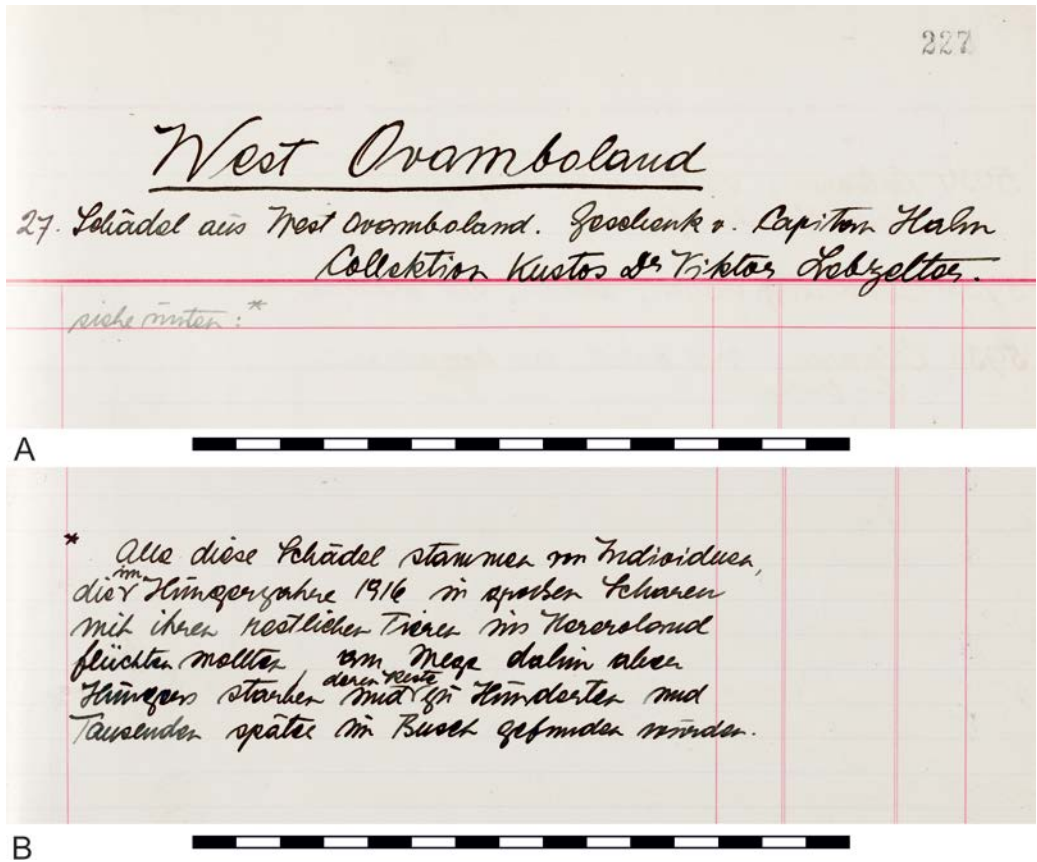 227
West Ovamboland
27. Schädel aus West Ovamboland. Geschenk v. Capitan Hahn
Collektion Kustos Dr Viktor Lebzelter.
siehe unten: *
A
* Alle diese Schädel stammen von Individuen,
die im Hungerjahre 1916 in großen Scharen
mit ihren restlichen Tieren ins Hereroland
flüchten wollten, am Wege dahin aber
Hungers starben und deren Reste zu Hunderten und
Tausenden später im Busch gefunden wurden.
B